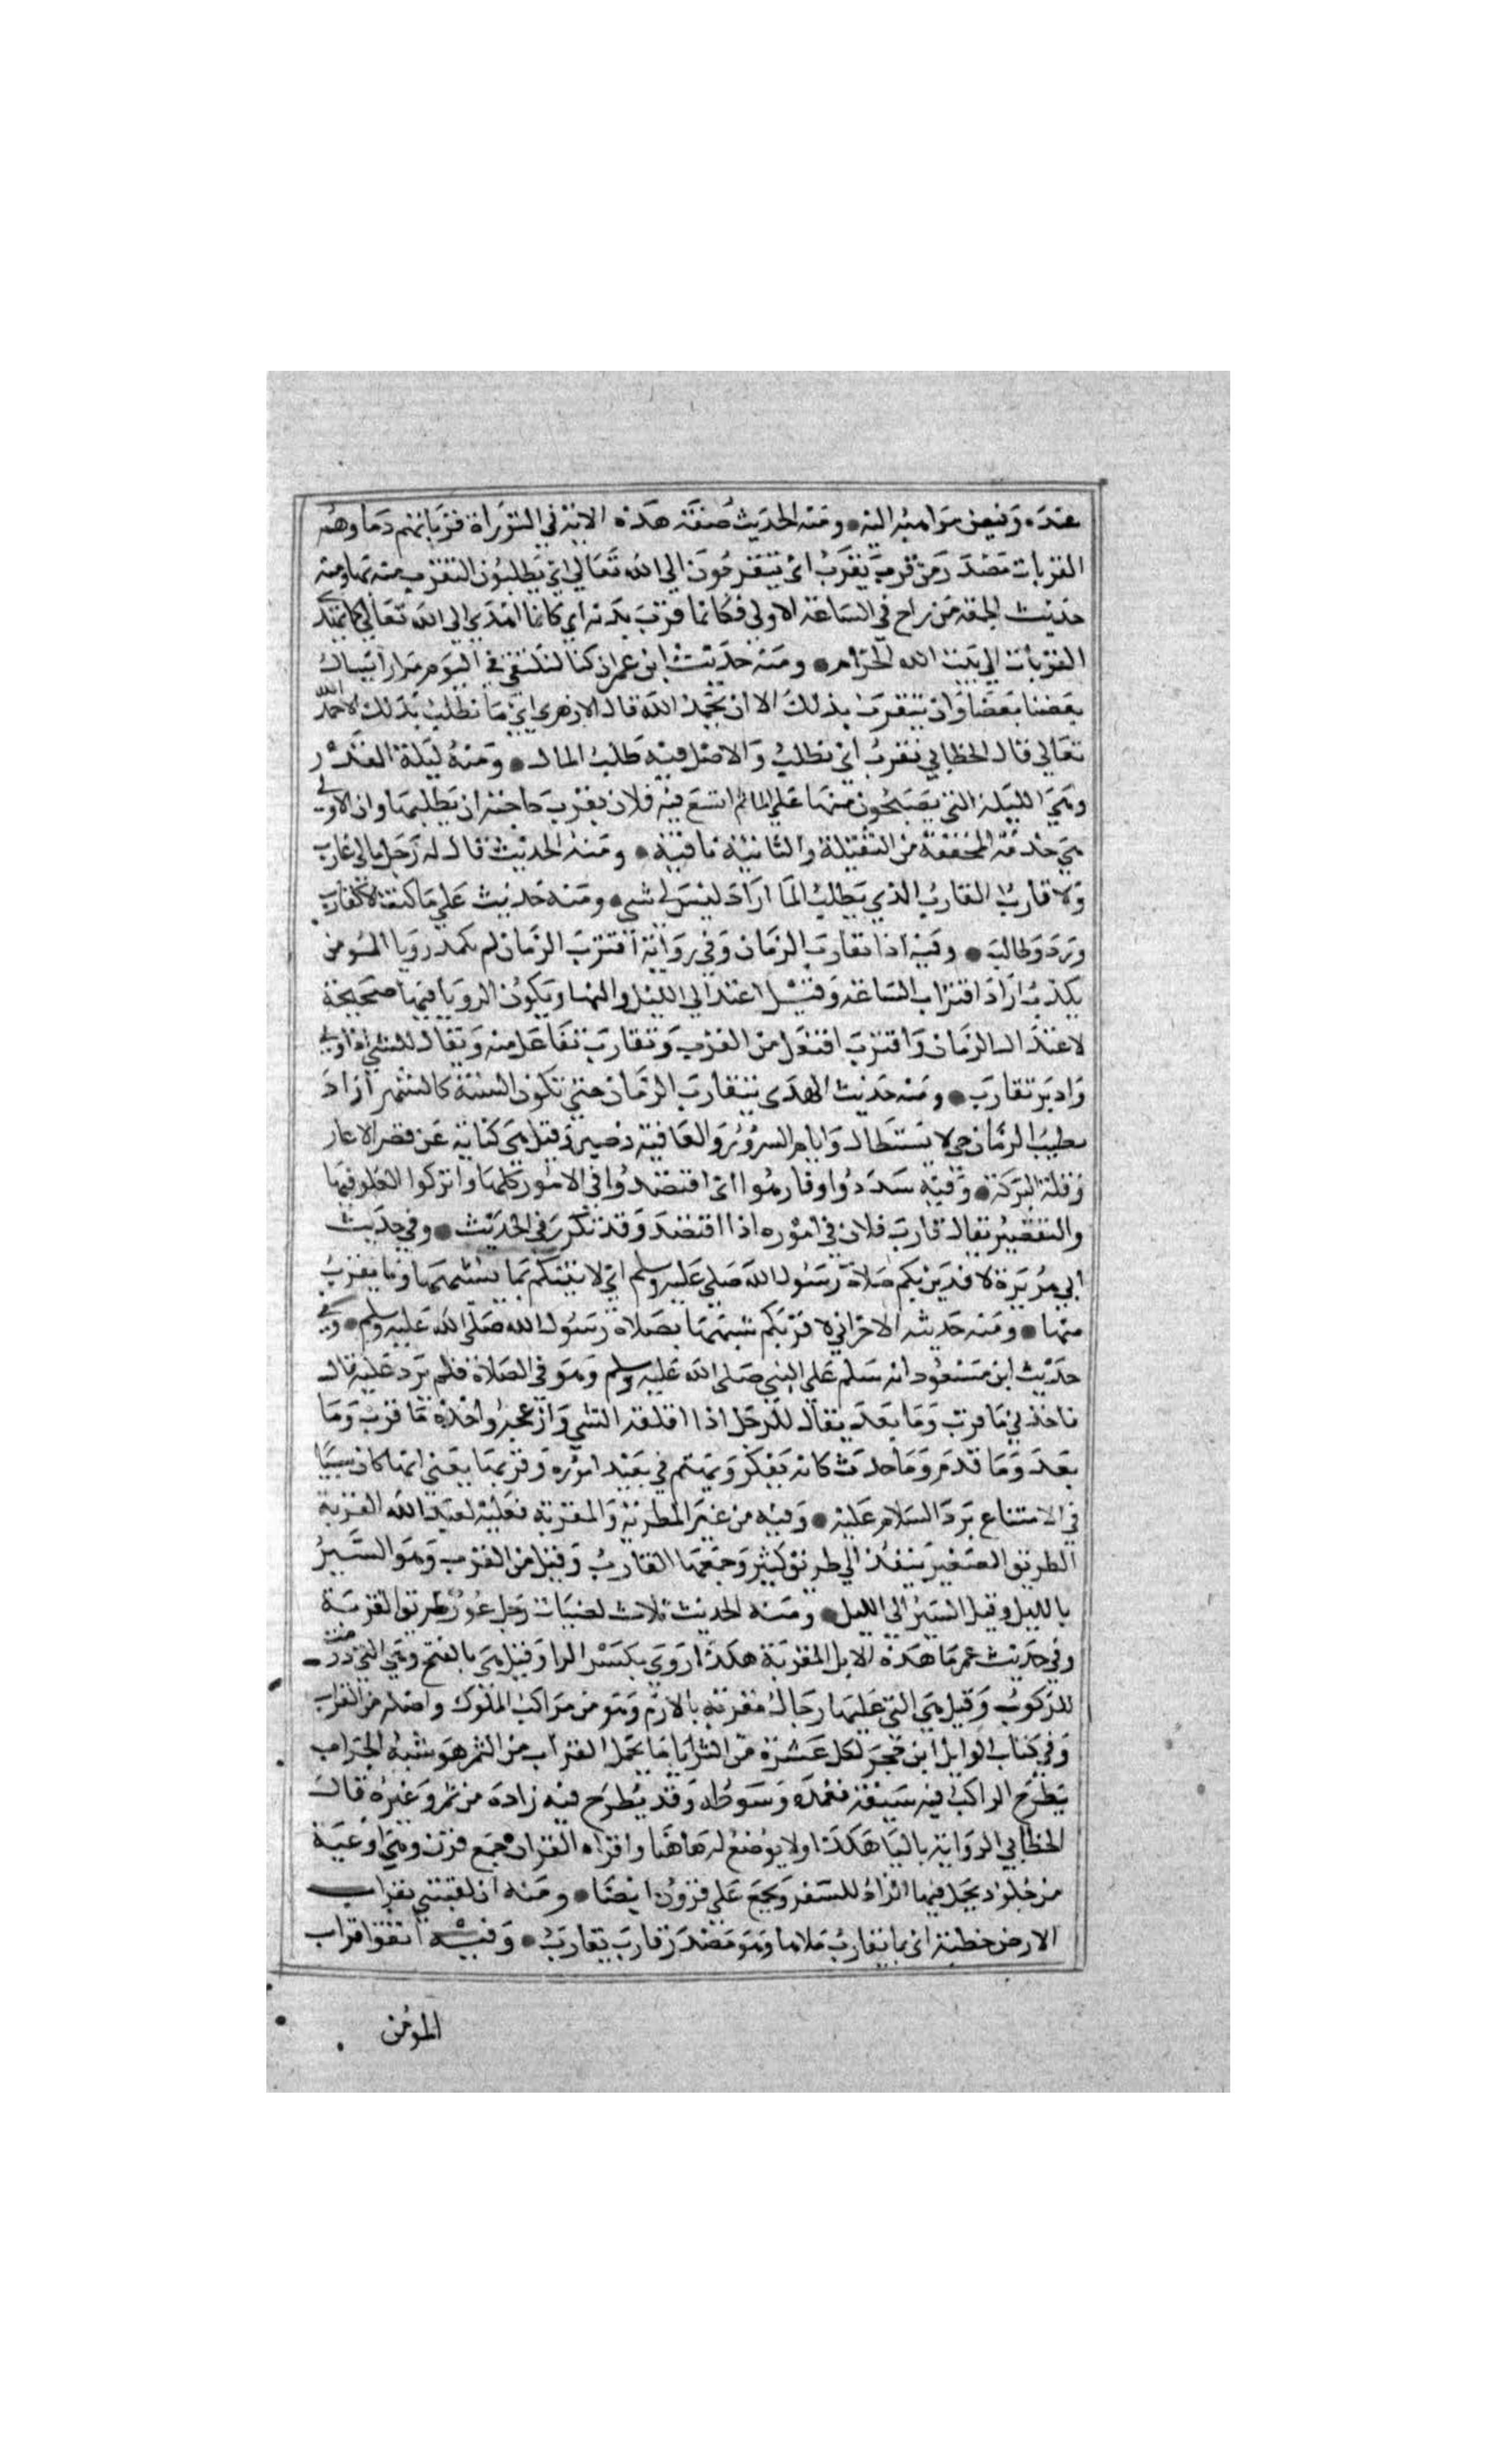 عنده وفيض مواهبه اليه ومنه الحديث صفة هذه الامة في التوراة قربانهم دماوهم
القربان مصدر من قرب يقرب اي يتقربون الي الله تعالي اي يطلبون التقرب منه بها ومنه
حديث الجمعة من راح في الساعة الاولي فكانما قرب بدنة اي كانما اهدي الي الله تعالي كما يهدي
القربان الي بيت الله الحرام ومنه حديث ابن عمر ان كنا لنلتقي في اليوم مرارا يسال
بعضنا بعضا وان نتقرب بذلك الا ان نحمد الله قال الازهري اي ما نطلب بذلك الا حمد الله
تعالي قال الخطابي نقرب اي نطلب والاصل فيه طلب الما ومنه ليلة القرب
وهي الليلة التي يصبحون منها علي الما ثم اتسع فيه فلان يقرب حاجته ان يطلبها وان الاولي
هي مخففة من الثقيلة والثانية نافية ومنه الحديث قال له رجل مالي هارب
ولا قارب القارب الذي يطلب الما اراد ليس لي شي ومنه حديث علي ما كنت الا كقارب
ورد وطالب وفيه اذا تقارب الزمان وفي رواية اقترب الزمان لم تكد رويا المومن
تكذب اراد اقتراب الساعة وقيل اعتدال الليل والنهار وتكون الرويا فيها صحيحة
لاعتدال الزمان واقترب افتعل من القرب وتقارب تفاعل منه ويقال للشي اذا ولي
وادبر تقارب ومنه حديث المهدي يتقارب الزمان حتي تكون السنة كالشهر اراد
يطيب الزمان حتي لا يستطال وايام السرور والعافية قصيرة وقيل هي كناية عن قصر الاعمار
وقلة البركة وفيه سددوا وقاربوا اي اقتصدوا في الامور كلها واتركوا الغلو فيها
والتقصير يقال قارب فلان في اموره اذا اقتصد وقد تكرر في الحديث وفي حديث
ابي هريرة لاقربن بكم صلاة رسول الله صلي عليه وسلم اي لاتينكم بما يشبهها وما يقرب
منها ومنه حديثه الاخر اني لاقربكم شبها بصلاة رسول الله صلي الله عليه وسلم وفي
حديث ابن مسعود انه سلم علي النبي صلي الله عليه وسلم وهو في الصلاة فلم يرد عليه قال
فاخذني ما قرب وما بعد يقال للرجل اذا اقلقه الشي وازعجه واخذه ما قرب وما
بعد وما قدم وما حدث كانه يفكر ويهتم في بعيد اموره وقريبها يعني ايها كان سببا
في الامتناع برد السلام عليه وفيه من غير المطربة والمقربة فعليه لعنة الله المقربة
الطريق الصغير ينفذ الي طريق كبير وجمعها المقارب وقيل من القرب وهو السير
بالليل وقيل السير الي الليل ومنه الحديث ثلاث لعينات رجل عور طريق المقربة
وفي حديث عمر ما هذه الابل المقربة هكذا روي بكسر الرا وقيل هي بالفتح وهي التي حزمت
للركوب وقيل هي التي عليها رحال مقربة بالادم وهو من مراكب الملوك واصله من القراب
وفي كتاب لوايل ابن حجر لكل عشرة من السرايا ما يحمل القراب من التمر هو شبه الجراب
يطرح الراكب فيه سيفه بغمده وسوطه وقد يطرح فيه زاده من تمر وغيره قال
الخطابي الرواية باليا هكذا ولا موضع له هاهنا واراه القراف جمع قرف وهي اوعية
من جلود يحمل فيها الزاد للسفر ويجمع علي قروف ايضا ومنه ان لقيتني بقراب
الارض خطية اي بما يقارب ملاها وهو مصدر قارب يقارب وفيه اتقوا قراب
المومن